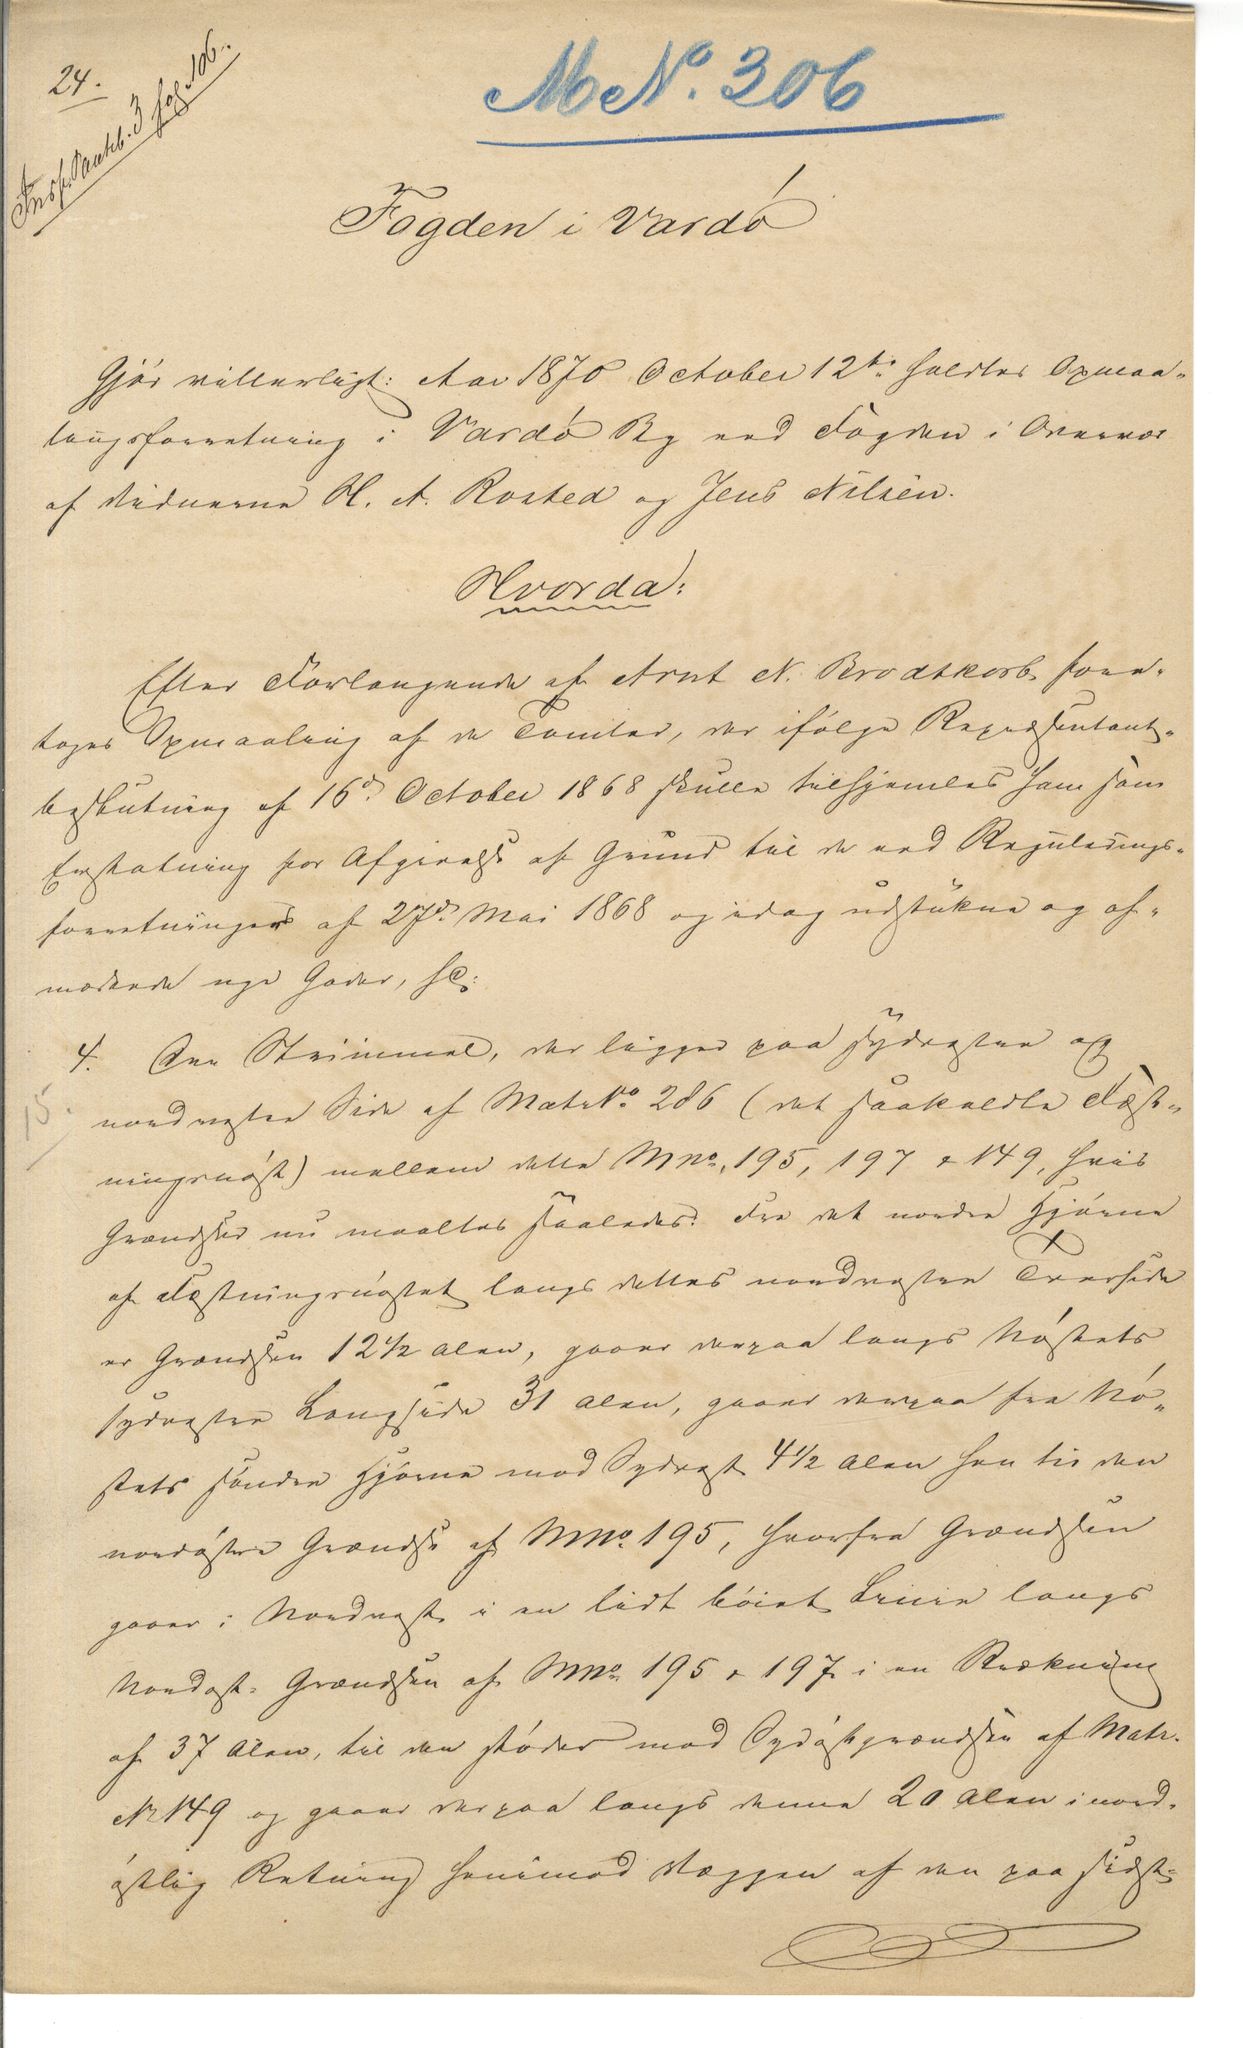 24.
Insf. Pantb. 3 fog. 106.
M No. 306
Fogden i Vardö
Gjör vitterligt: Aar 1870 October 12te holdtes Opmaa-
lingsforretning i Vardö By ved Fogden i Overvær
af Vidnerne H. A. Rosted og Jens Nilsen.
Hvorda:
Efter Forlangende af Arnt N. Brodtkorb fore-
toges Opmaaling af de Tomter, der ifölge Repræsentant-
beslutning af 16d October 1868 skulle tilhjemles ham som
Erstatning for Afgivelse af Grund til de ved Regulerings-
forretninger af 27d Mai 1868 og idag udstukne og af-
mærkede nye Gader, sc:
15.
4. Den Strimmel, der ligger paa sydvestre og
nordvestre Side af Matr No. 286 (det saakaldte Fæst-
ningsnöst) mellem dette MNo. 195, 197 & 149, hvis
Grændser nu maaltes saaledes: Fra det nordre Hjörne
af Fæstningsnöstet langs dettes nordvestre Tverside
er Grændsen 12 1/2 Alen, gaaer derpaa langs Nöstets
sydvestre Langside 31 Alen, gaaer derpaa fra Nö-
stets söndre Hjörne mod Sydvest 4 1/2 Alen hen til den
nordöstre Grændse af MNo. 195, hvorfra Grændsen
gaaer i Nordvest i en lidt böiet Linie langs
Nordost-Grændsen af MNo. 195 & 197 i en Strækning
af 37 Alen, til den stöder mod Sydöstgrændsen af Matr.
N 149 og gaaer derpaa langs denne 20 Alen i nord-
östlig Retning henimod Væggen af den paa sidst-